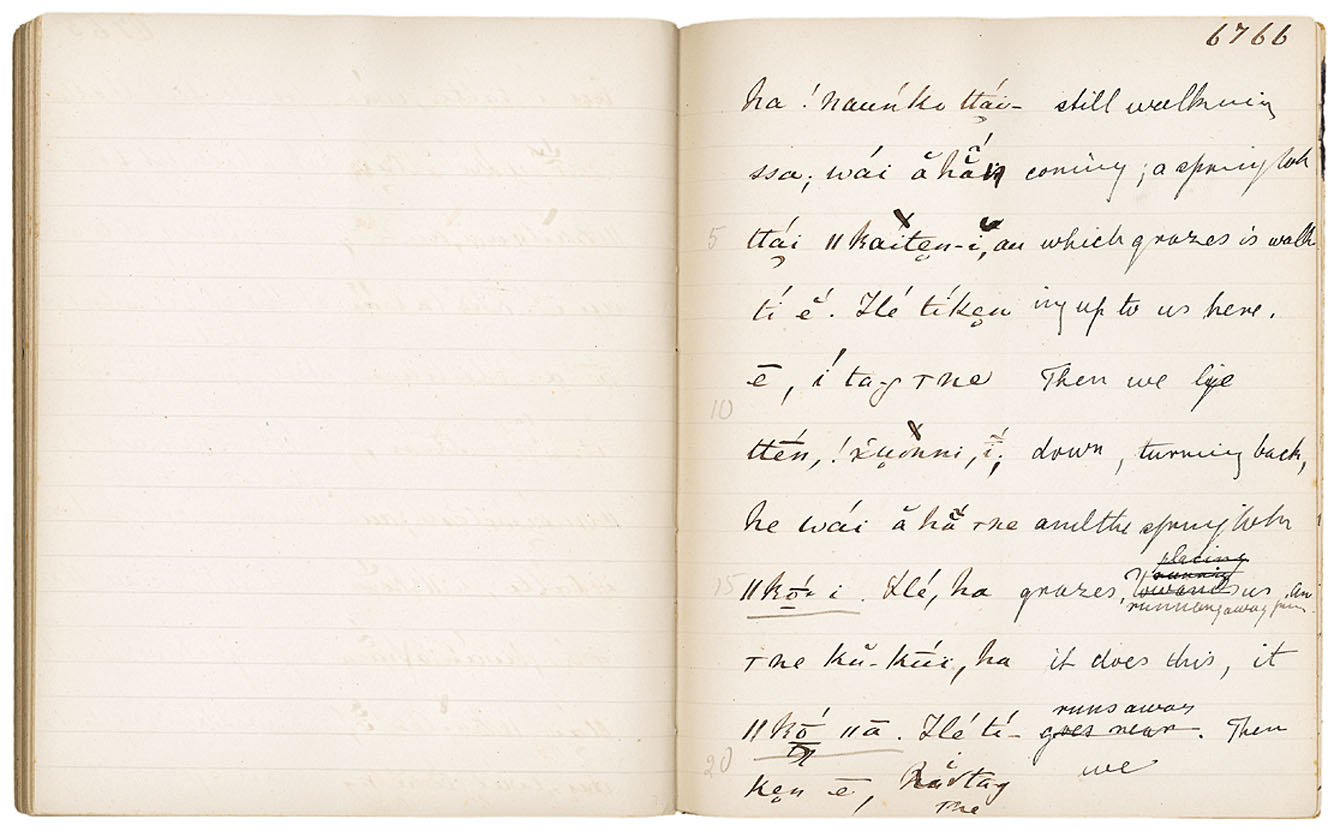 6766
ha ! hauń ko ttái- still walking
ssa; wái ă hă coming; a springbok
5 ttái ॥ kaiten-ĭ, au which grazes is walk
tí ĕ́. Ĭlé tíken ing up to us here.
ē, í ta-g ⊤ne Then we lye
10
ttḗn, ! x́uónni, ĭ́; down, turning back,
he wái ă hă ⊤ne and the springbok
placing
running
15 ॥kō i. Ĭlé, ha grazes, towards us, an
running away from
⊤ne kŭ-kūi, ha it does this, it
runs away
॥kō ॥ā. Ĭlé tí- goes near. Then
20 ken ē, we
⊤ne